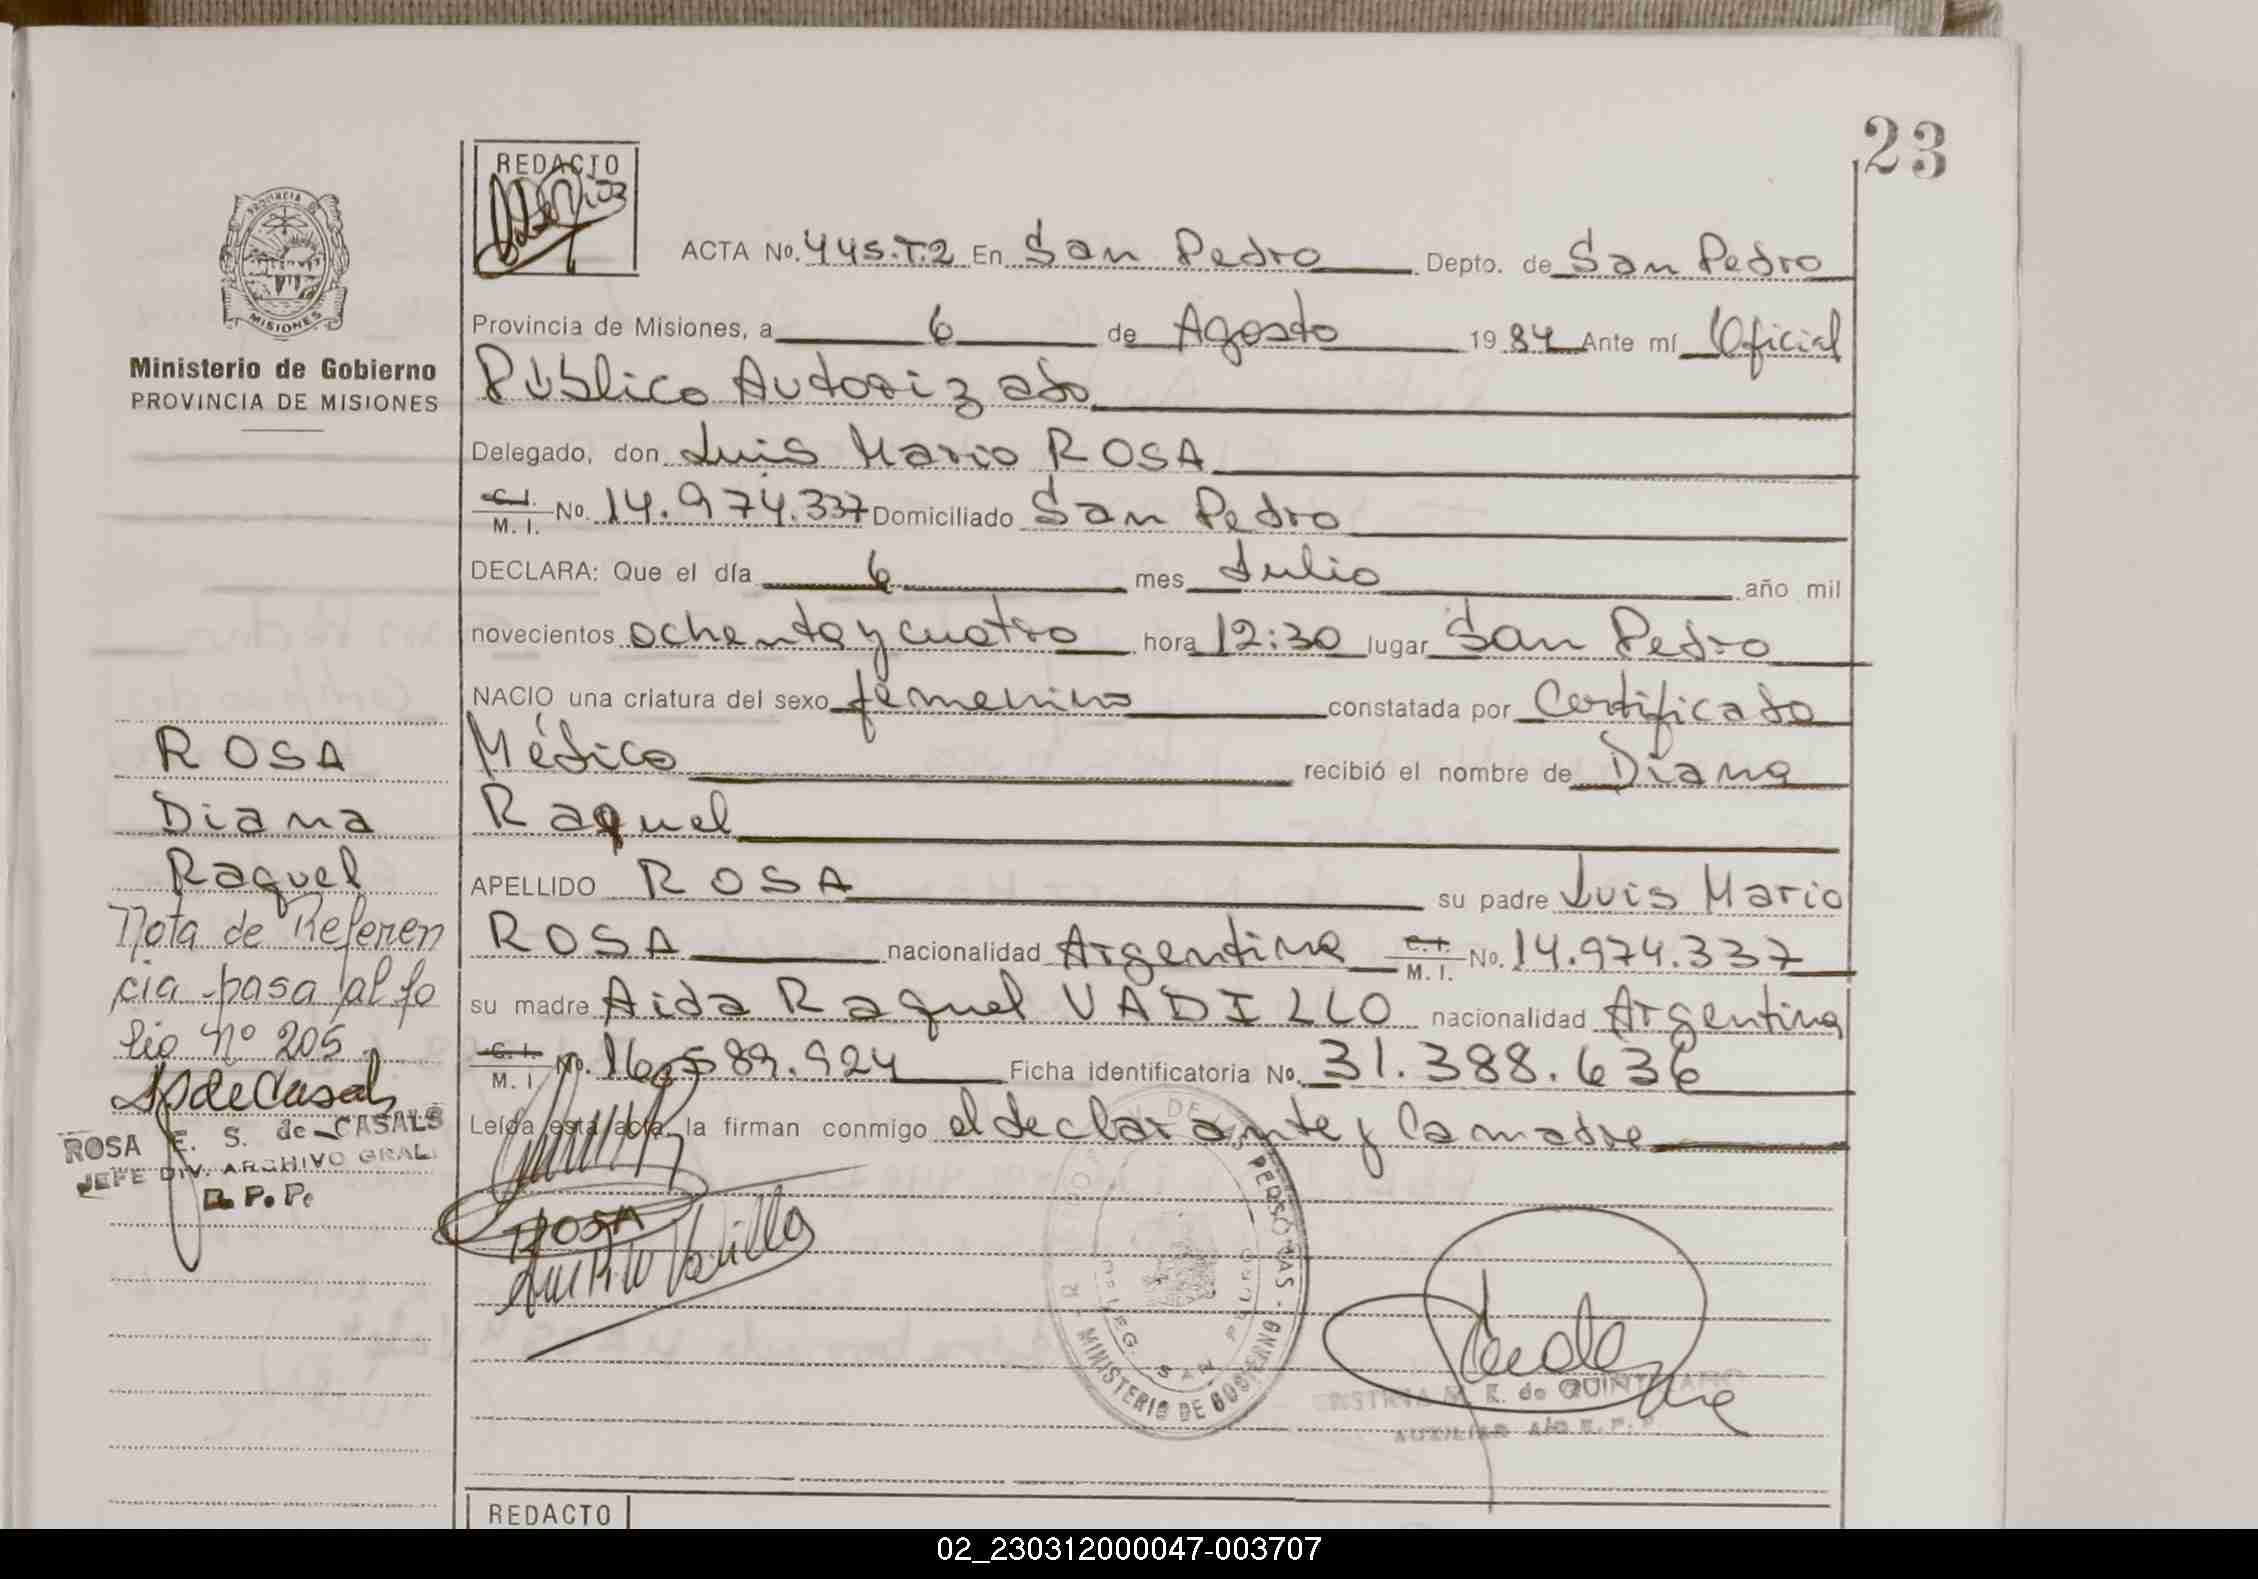 23
REDACTO
ACTA No. 445.T.2 En San Pedro Depto. de San Pedro
PROVINCIA DE MISIONES
Provincia de Misiones, a 6 de Agosto 1984 Ante mí Oficial
Ministerio de Gobierno
PROVINCIA DE MISIONES
Público Autorizado
Delegado, don Luis Mario ROSA
C. I. M. I. No. 14.974.337 Domiciliado San Pedro
DECLARA: Que el día 6 mes Julio año mil
novecientos ochenta y cuatro hora 12:30 lugar San Pedro
NACIO una criatura del sexo femenino constatada por Certificado
Médico recibió el nombre de Diana
Raquel
APELLIDO ROSA su padre Luis Mario
ROSA nacionalidad Argentina C. I. M. I. No. 14.974.337
su madre Aida Raquel VADILLO nacionalidad Argentina
C. I. M. I No. 16.589.924 Ficha identificatoria No. 31.388.636
Leída esta acta, la firman conmigo el declarante y la madre
ROSA
Diana
Raquel
Nota de Referen
cia pasa al fo
lio nº 205
ROSA E. S. de CASALS
JEFE DIV. ARCHIVO GRAL.
R. P. P.
ROSA
Vadillo
DE LAS PERSONAS - MINISTERIO DE GOBIERNO
DELEG. SAN PEDRO
M. E. de QUINTANA
AUXILIAR A/c R. P. P.
REDACTO
02_230312000047-003707